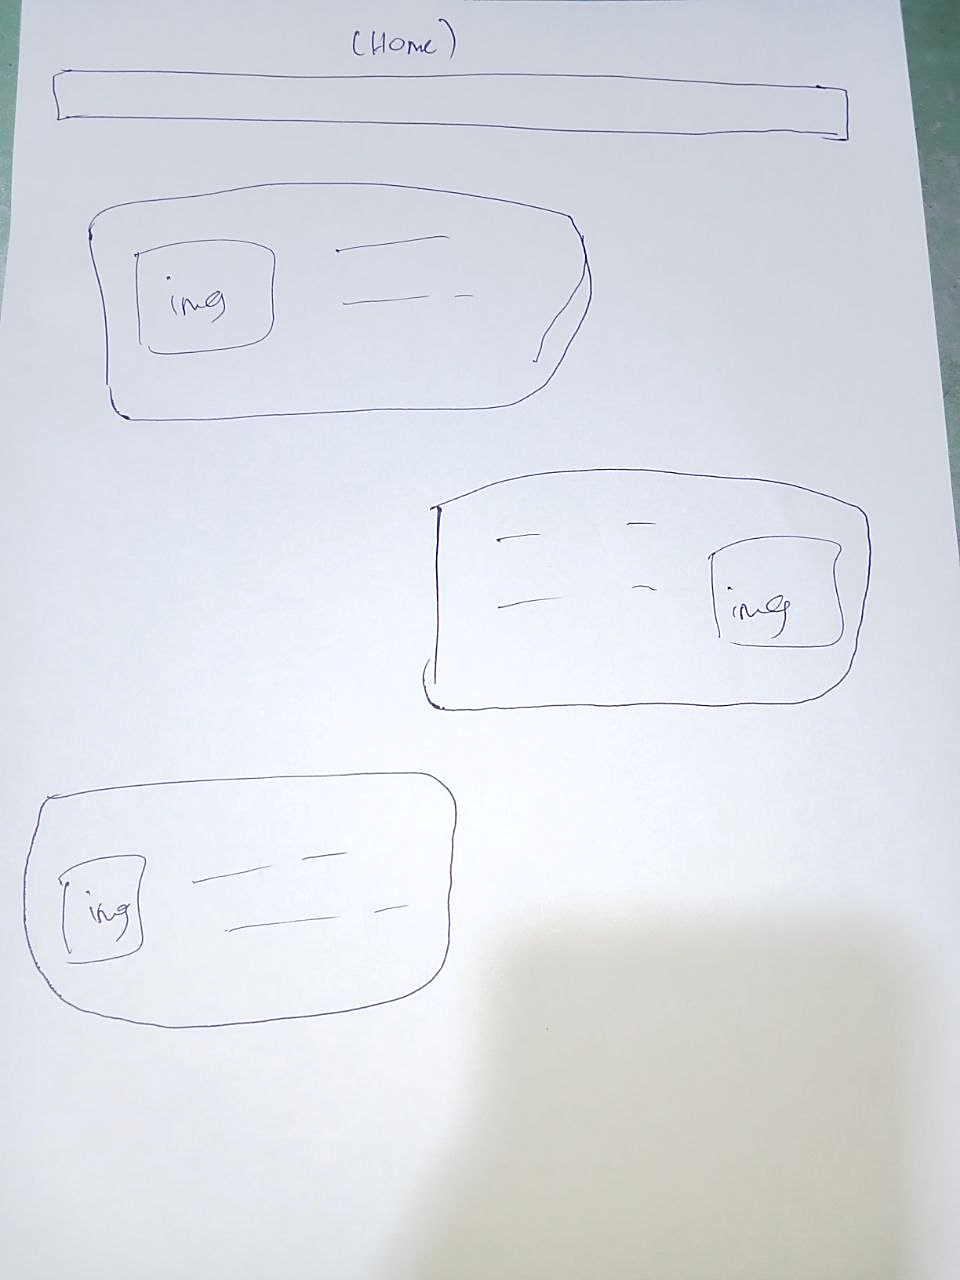 (Home)
img
img
img